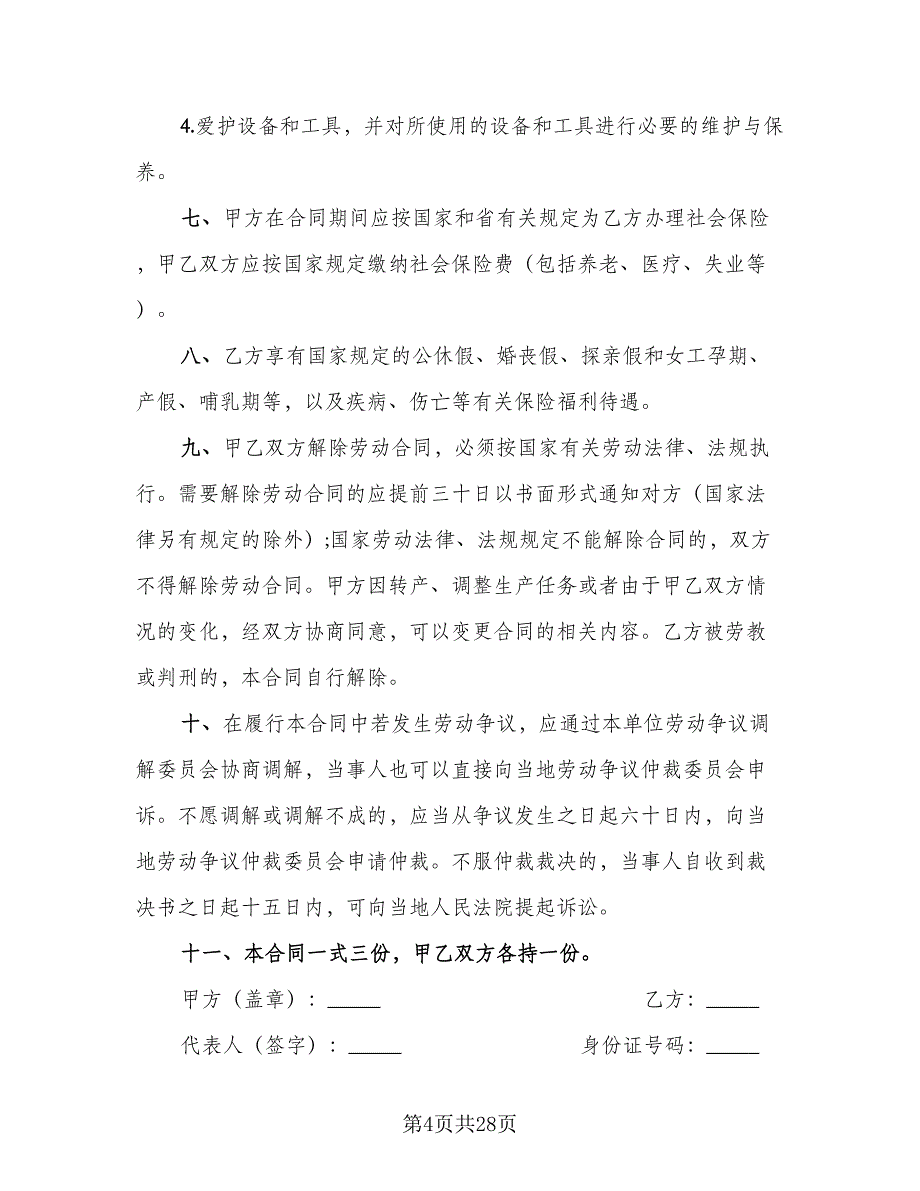 4.爱护设备和工具，并对所使用的设备和工具进行必要的维护与保
养。
七、甲方在合同期间应按国家和省有关规定为乙方办理社会保险
，甲乙双方应按国家规定缴纳社会保险费（包括养老、医疗、失业等
）。
八、乙方享有国家规定的公休假、婚丧假、探亲假和女工孕期、
产假、哺乳期等，以及疾病、伤亡等有关保险福利待遇。
九、甲乙双方解除劳动合同，必须按国家有关劳动法律、法规执
行。需要解除劳动合同的应提前三十日以书面形式通知对方（国家法
律另有规定的除外）;国家劳动法律、法规规定不能解除合同的，双方
不得解除劳动合同。甲方因转产、调整生产任务或者由于甲乙双方情
况的变化，经双方协商同意，可以变更合同的相关内容。乙方被劳教
或判刑的，本合同自行解除。
十、在履行本合同中若发生劳动争议，应通过本单位劳动争议调
解委员会协商调解，当事人也可以直接向当地劳动争议仲裁委员会申
诉。不愿调解或调解不成的，应当从争议发生之日起六十日内，向当
地劳动争议仲裁委员会申请仲裁。不服仲裁裁决的，当事人自收到裁
决书之日起十五日内，可向当地人民法院提起诉讼。
十一、本合同一式三份，甲乙双方各持一份。
甲方（盖章）：_____ 乙方：_____
代表人（签字）：_____ 身份证号码：_____
第4页共28页